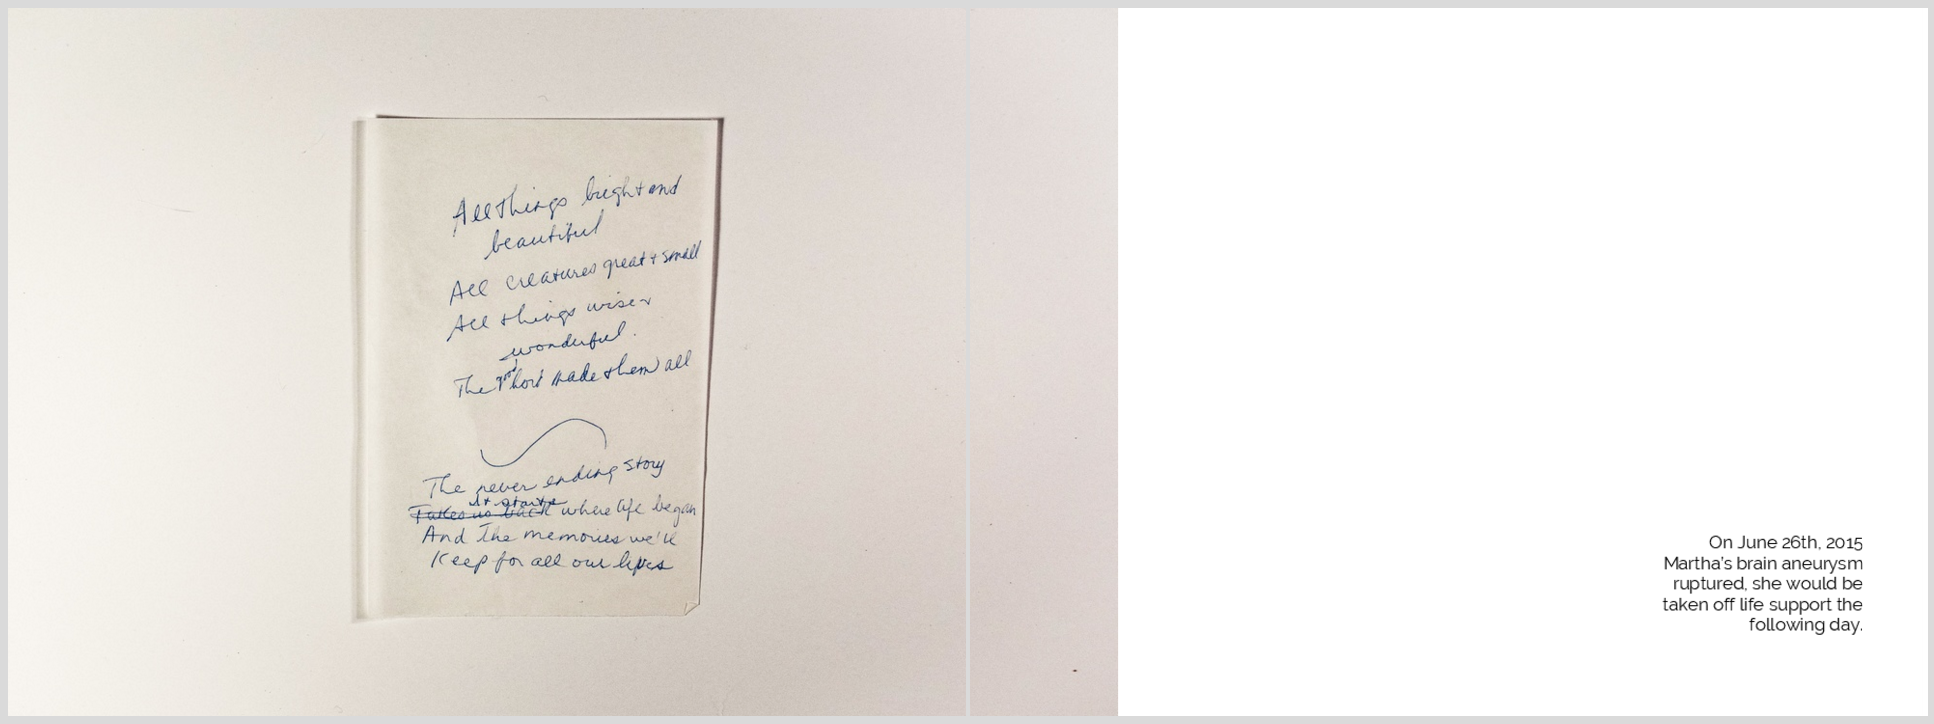 All things bright and
beautiful
All creatures great + small
All things wise +
wonderful.
The made them all
The never ending story
it starts
Takes us back where life began
And The memories we'll
Keep for all our lives
On June 26th, 2015
Martha's brain aneurysm
ruptured, she would be
taken off life support the
following day.